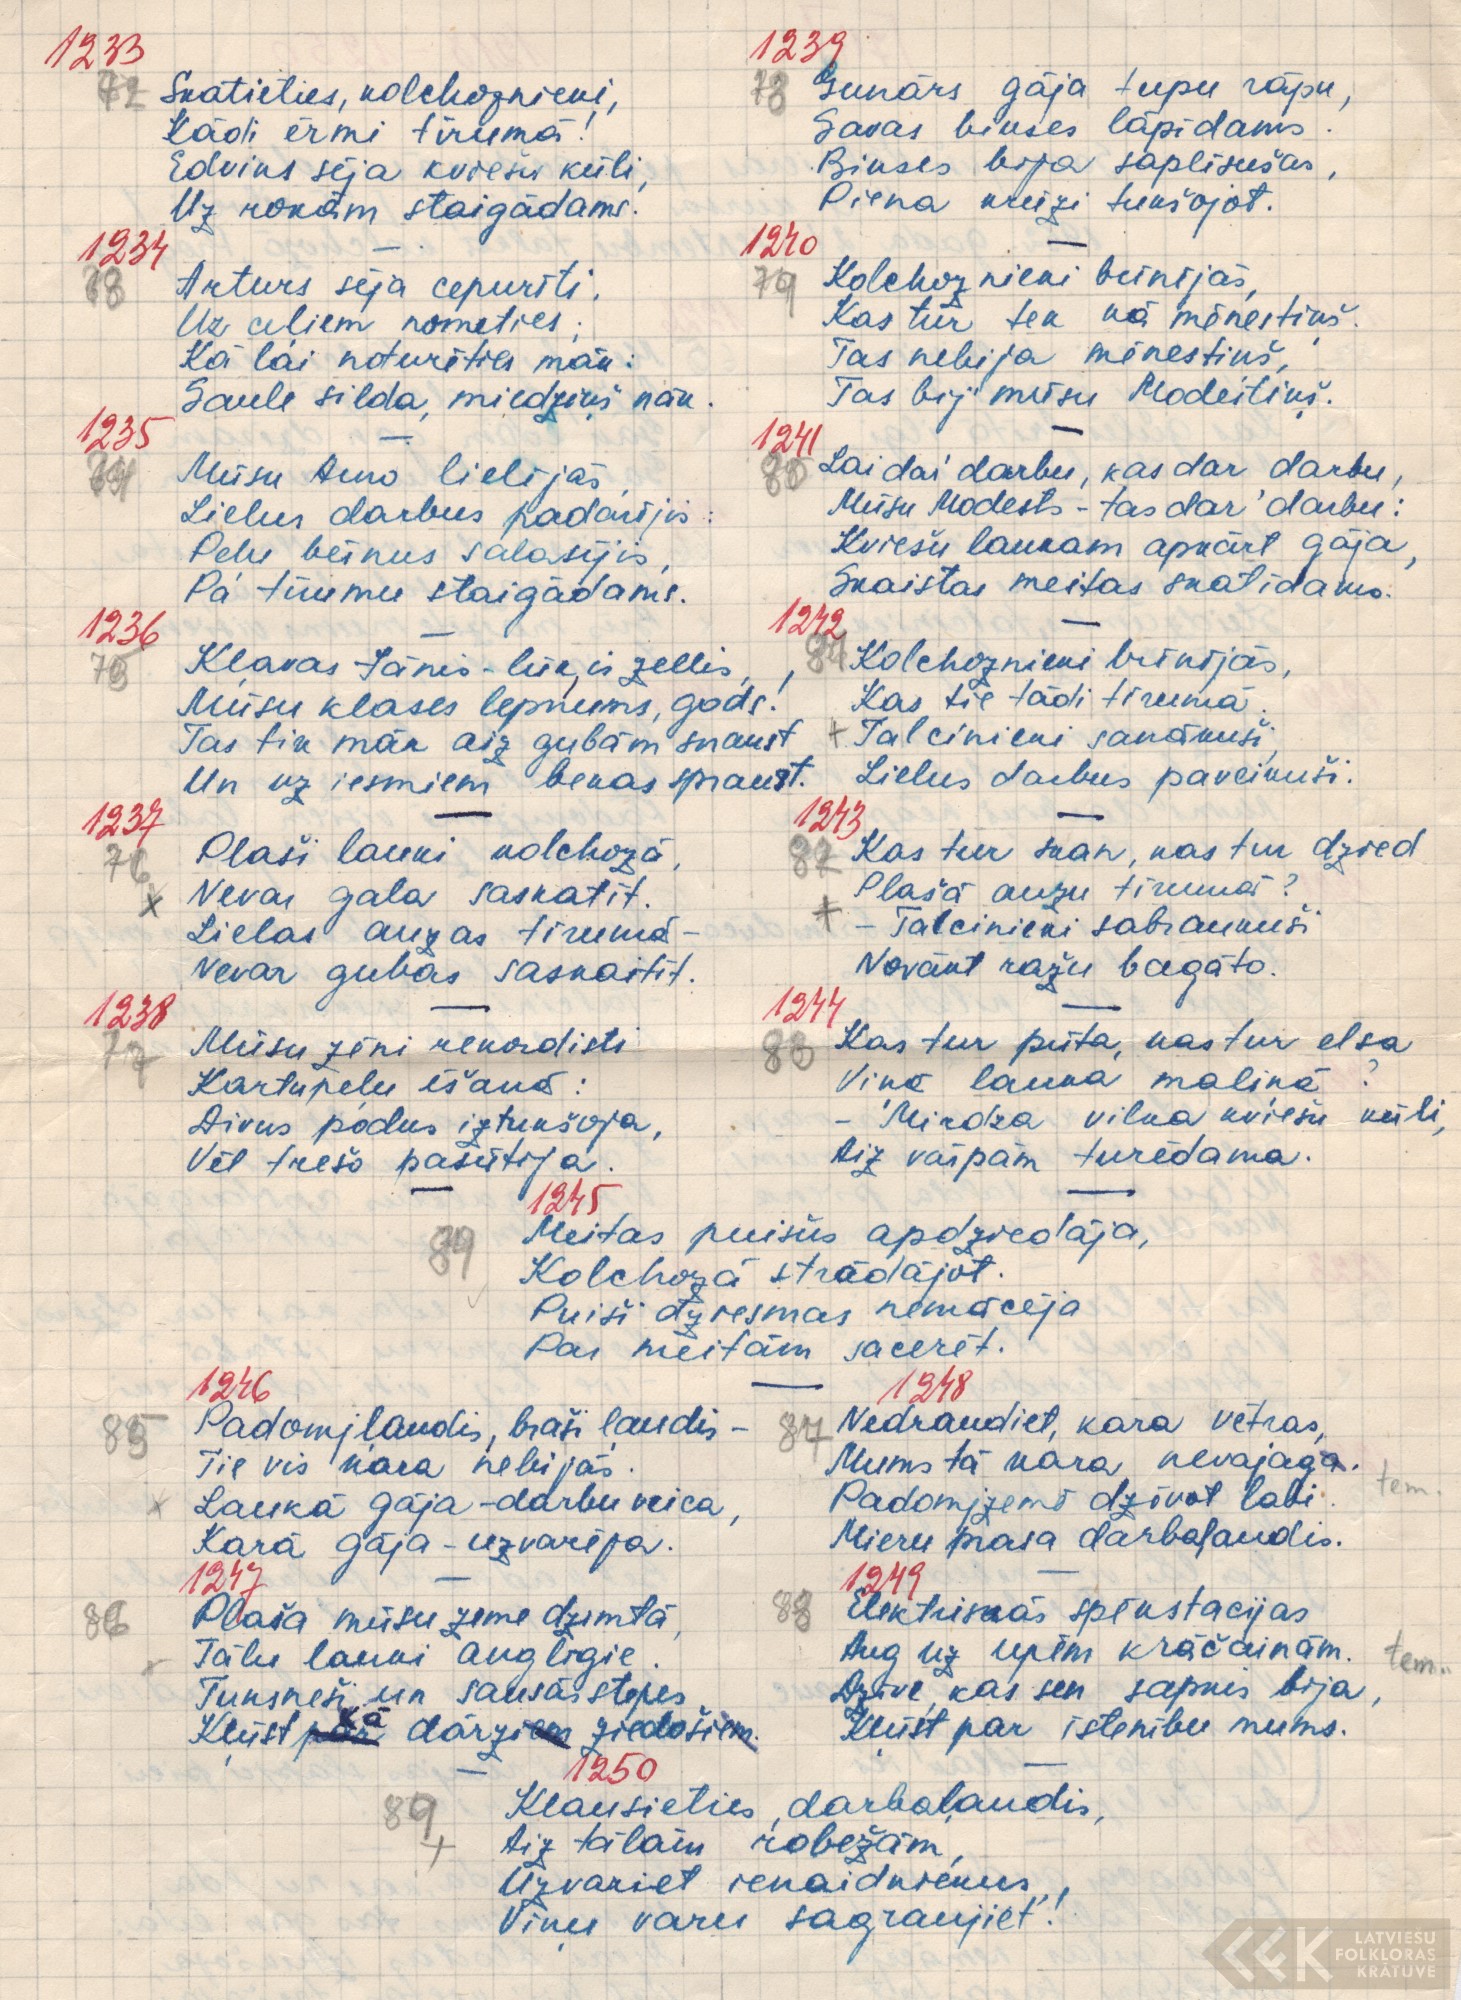 1233
72
Skatieties, kolchoznieki,
Kādi ērmi tīrumā!
Edvins sēja kviešu kūli,
Uz rokām staigādams.
1234
73
Arturs sēja cepurīti,
Uz celiem nometies;
Kā lai noturēties mān:
Saule silda, miedziņš nāk.
1235
74
Mūsu Arno lielījās,
Lielus darbus padarījis:
Peļu bērnus salasījis,
Pa tīrumu staigādams.
1236
75
Kļavas Jānis - lūk, is zellis,
Mūsu klases lepnums, gods!
Tas tik māk aiz gubām snaust
Un uz iesmiem bekas spraust.
1237
76
x
Plaši lauki kolchozā,
Nevar gala saskatīt.
Lielas auzas tīrumā -
Nevar gubas saskaitīt.
1238
77
Mūsu zēni rekordisti
Kartupeļu ēšanā:
Divus podus iztukšoja,
Vēl trešo pasūtīja.
1239
78
Gunārs gāja tupu rāpu,
Savas bikses lāpīdams.
Bikses bija saplīsušas,
Piena krūzi tukšojot.
1240
79
Kolchoznieki brīnījās,
Kas tur tek kā mēnestiņš.
Tas nebija mēnestiņš,
Tas bij' mūsu Modeitiņš.
1241
80
Lai dar' darbu, kas dar darbu,
Mūsu Modests - tas dar' darbu:
Kviešu laukam apkārt gāja,
Skaistas meitas skatīdams.
1242
81
+
Kolchoznieki brīnījās,
Kas tie tādi tīrumā.
Talcinieki sanākuši,
Lielus darbus paveikuši.
1243
82
+
Kas tur skan, kas tur dzied
Plašā auzu tīrumā?
- Talcinieki sabraukuši
Novākt ražu bagāto.
1244
83
Kas tur pūta, kas tur elsa
Viņā lauka maliņā?
- Mirdza vilka kviešu kūli,
Aiz vārpām turēdama.
1245
84
Meitas puišus apdziedāja,
Kolchozā strādājot.
Puiši dziesmas nemācēja
Par meitām sacerēt.
1246
85
x
Padomjļaudis, braši ļaudis -
Tie vis kara nebijās.
Laukā gāja - darbu veica,
Karā gāja - uzvarēja.
1247
86
x
Plaša mūsu zeme dzimtā,
Tālu lauki auglīgie.
Tuksneši un sausās stepes
Kļūst par kā dārziem ziedošiem.
1248
87
Nedraudiet, kara vētras,
Mums tā kara nevajaga.
Padomjzemē dzīvot labi.
Mieru prasa darbaļaudis.
tem.
1249
88
Elektriskās spēkstacijas
Aug uz upēm krāčainām.
Dzīvē, kas sen sapnis bija,
Kļūst par īstenību mums.
tem.
1250
89
+
Klausieties, darbaļaudis,
Aiz tālām robežām,
Uzvariet ienaidniekus,
Viņu varu sagraujiet!
LATVIEŠU
FOLKLORAS
KRĀTUVE